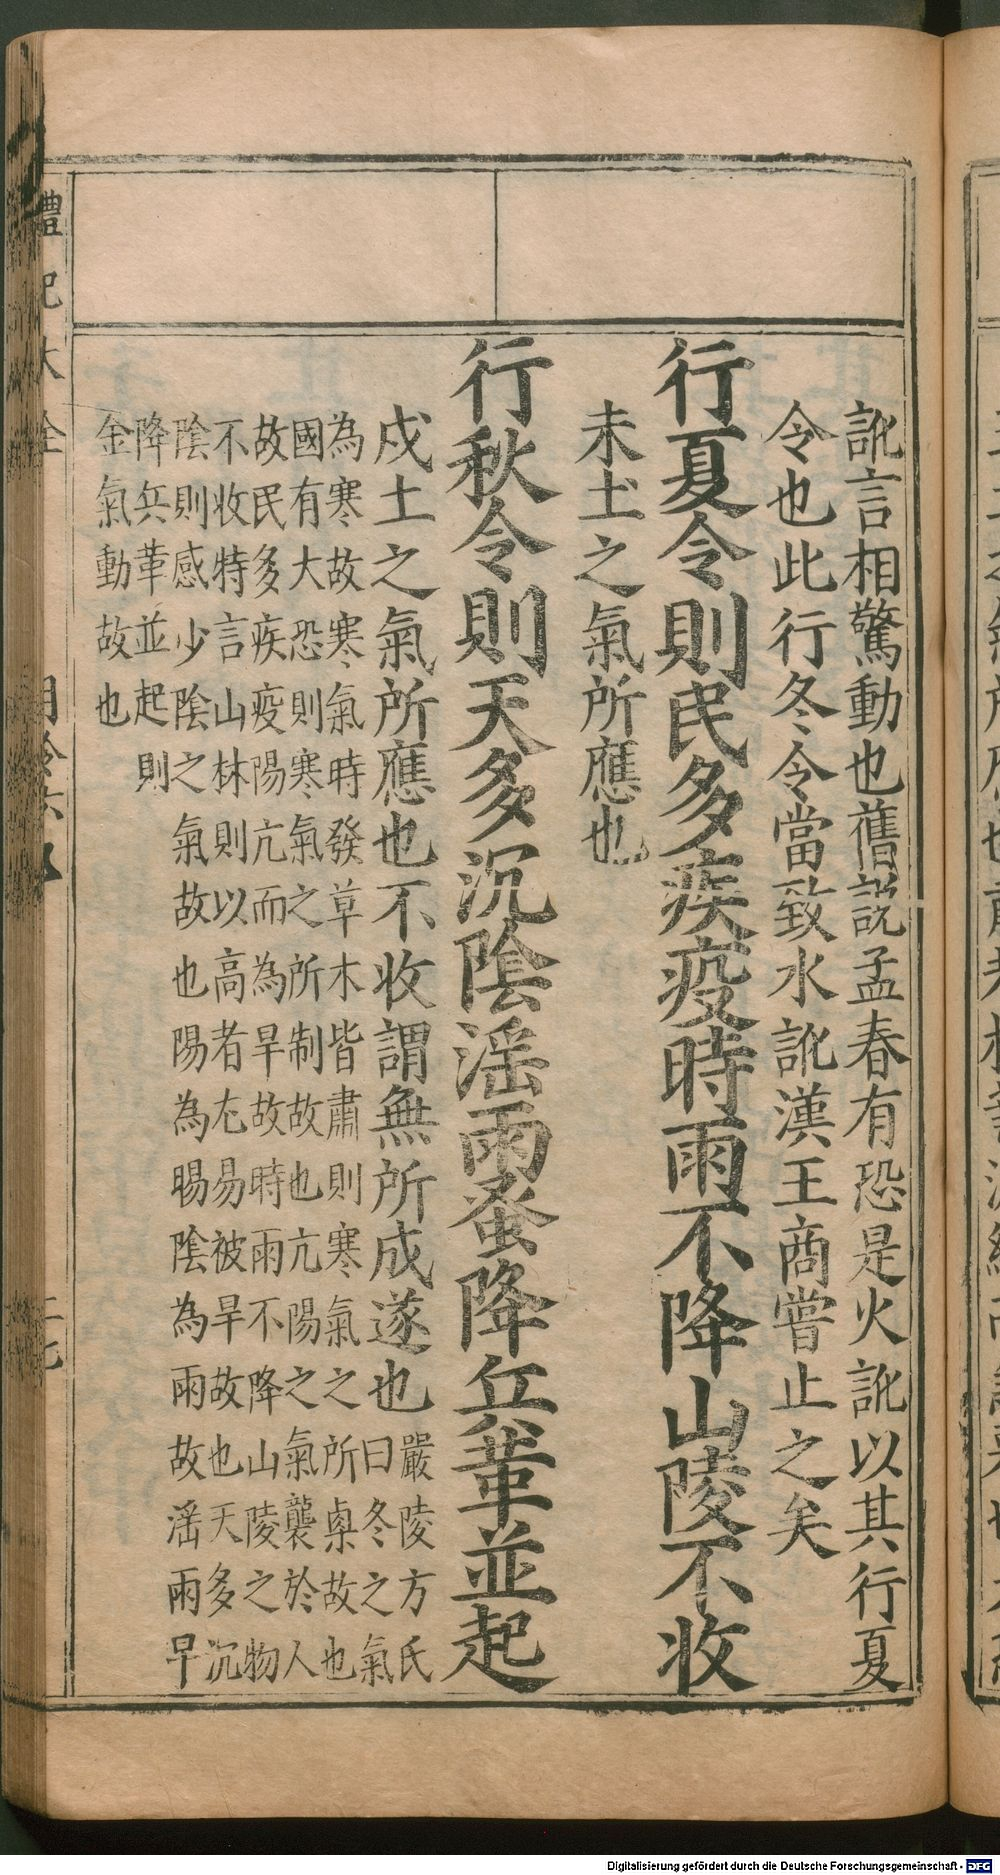 訛言相驚動也舊說孟春有恐是火訛以其行夏
令也此行冬令當致水訛漢王商嘗止之矣
行夏令則民多疾疫時雨不降山陵不收
未土之氣所應也
行秋令則天多沉陰淫雨蚤降兵革並起
戍土之氣所應也不收謂無所成遂也
嚴陵方氏
曰冬之氣
為寒故寒氣時發草木皆肅則寒氣之所㮚故也
國有大恐則寒氣之所制故也亢陽之氣襲於人
故民多疾疫陽亢而為旱故時雨不降山陵之物
不收特言山林則以高者尤易被旱故也天多沉
陰則感少陰之氣故也陽為暘陰為雨故淫雨早
降兵革並起則
金氣動故也
禮記大全
月令六
Digitalisierung gefördert durch die Deutsche Forschungsgemeinschaft - DFG